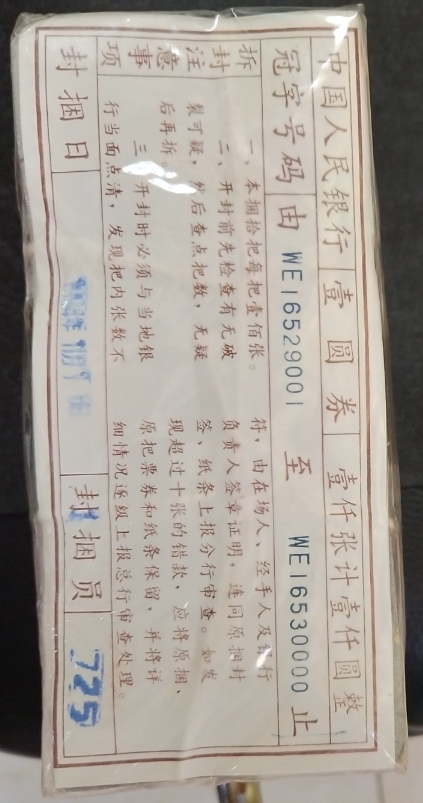 中国人民银行 壹圆券 壹仟张计壹仟圆整
冠字号码 由 WE16529001 至 WE16530000 止
拆封
注意
事项
一、本捆拾把每把壹佰张。
二、开封前先检查有无破
裂可疑，然后查点把数，无疑
后再拆。
三、开封时必须与当地银
行当面点清，发现把内张数不
符，由在场人、经手人及银行
负责人签章证明，连同原捆封
签、纸条上报分行审查。如发
现超过十张的错款，应将原捆、
原把票券和纸条保留，并将详
细情况逐级上报总行审查处理。
封捆日
封捆员 725